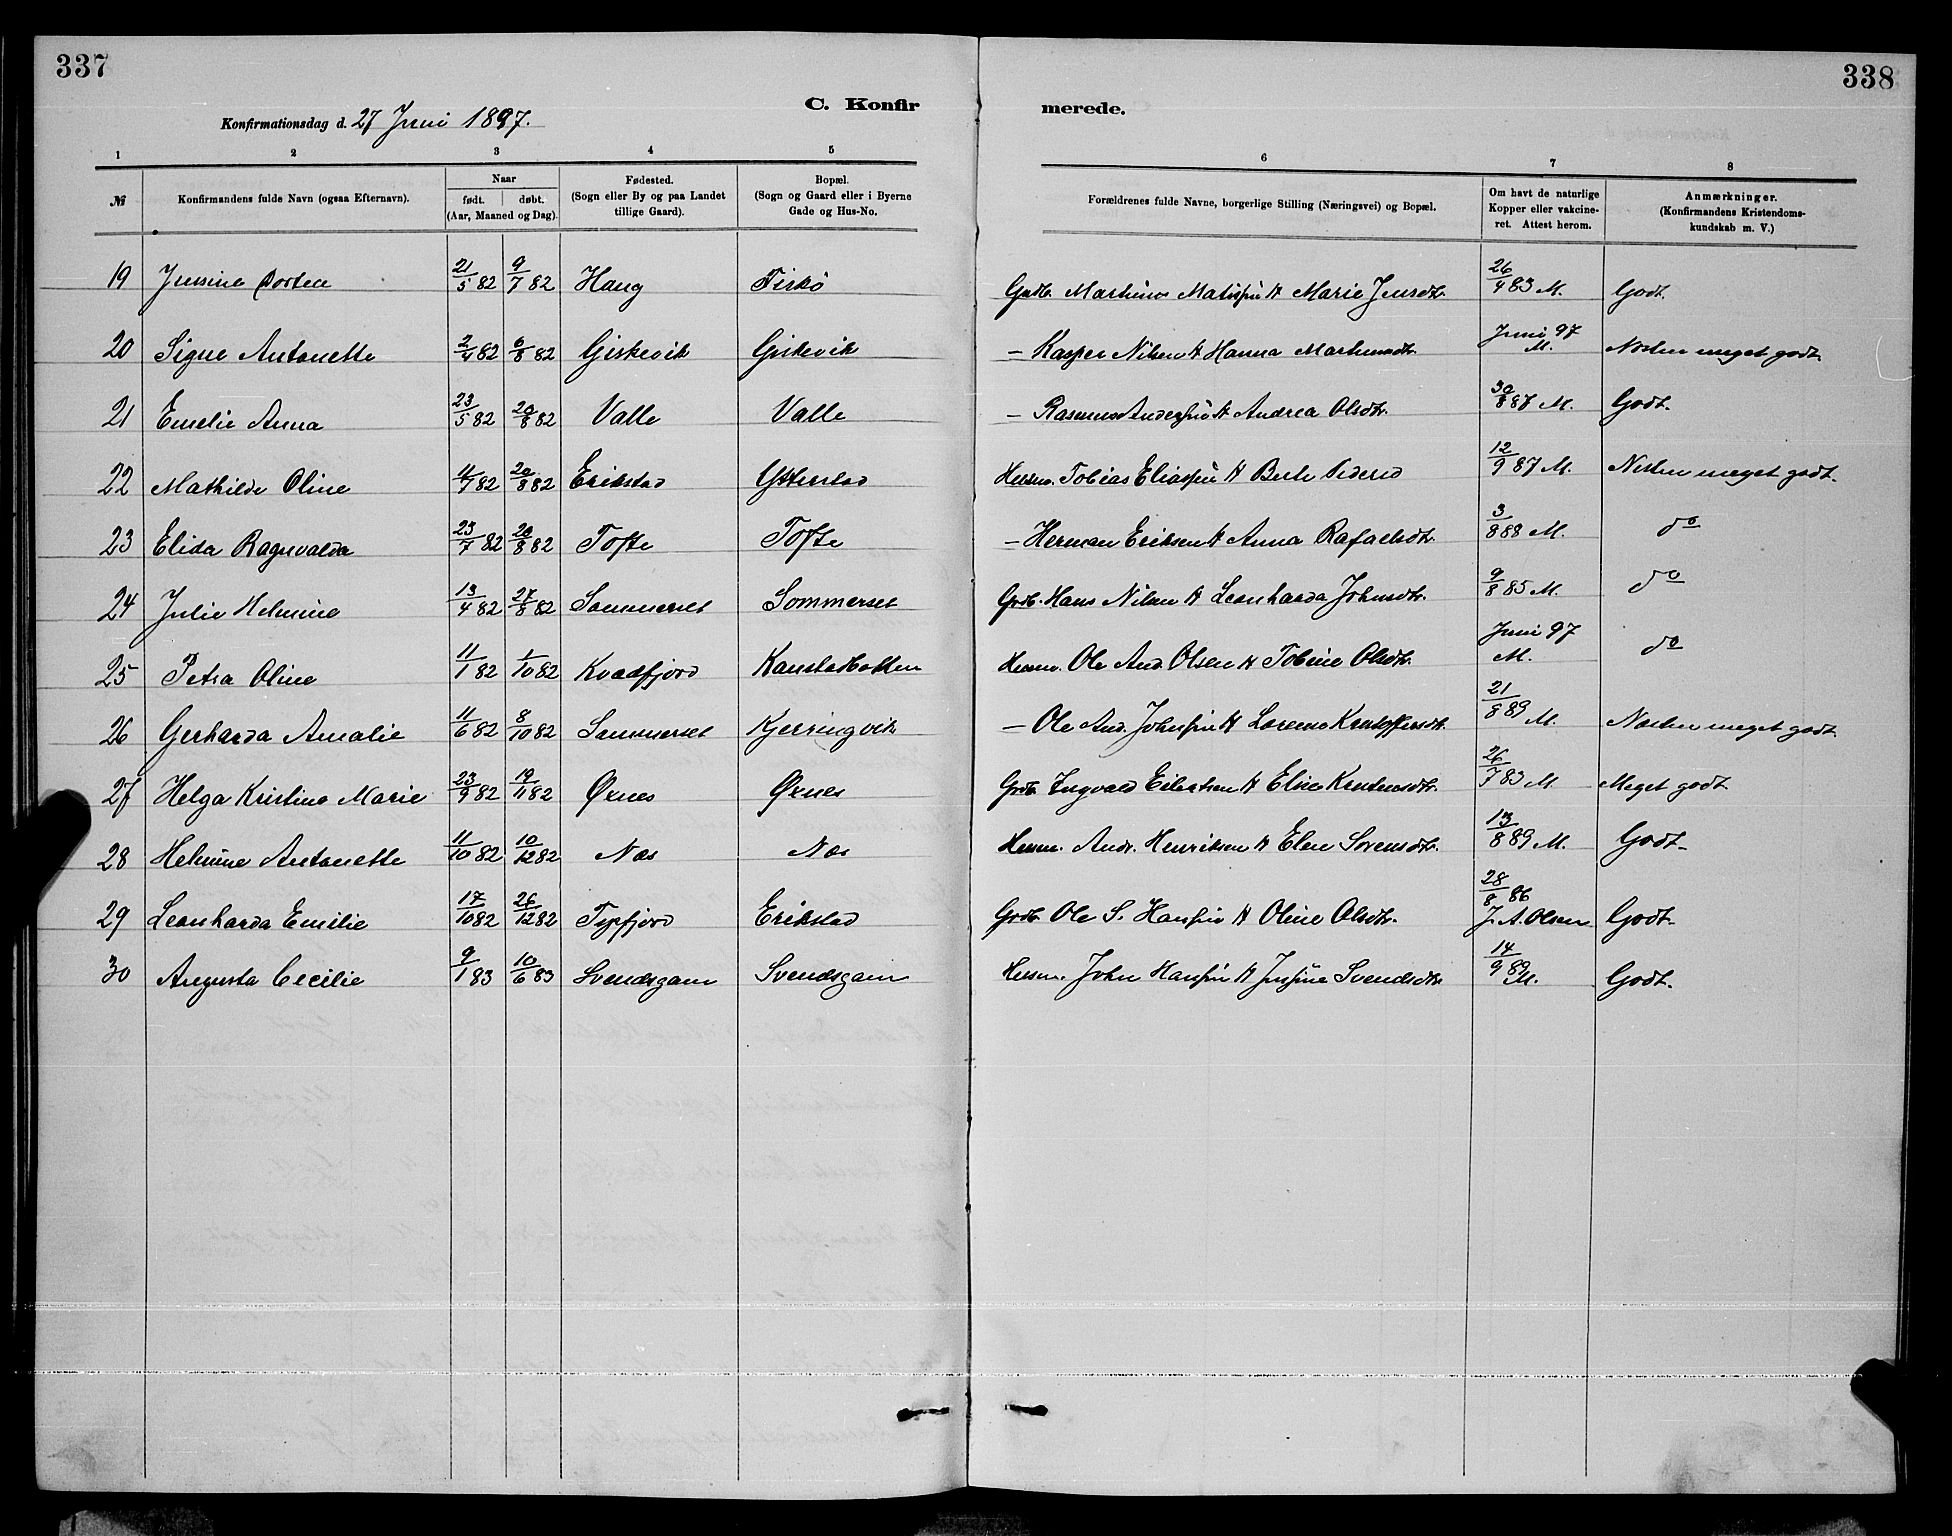 337
338
C. Konfir
merede.
Konfirmationsdag d. 27 Juni 1897.
1 2 3 4 5 6 7 8
№ Konfirmandens fulde Navn (ogsaa Efternavn). Naar født. døbt. (Aar, Maaned og Dag). Fødested. (Sogn eller By og paa Landet tillige Gaard). Bopæl. (Sogn og Gaard eller i Byerne Gade og Hus-No. Forældrenes fulde Navne, borgerlige Stilling (Næringsvei) og Bopæl. Om havt de naturlige Kopper eller vakcineret. Attest herom. Anmærkninger. (Konfirmandens Kristendomskundskab m. V.)
19 Jensine Dortea 21/5 82 9/7 82 Haug Fiskø Grdb. Martinus Matisen & Marie Jensdtr. 26/4 83 M. Godt.
20 Signe Antonette 2/4 82 6/8 82 Giskevik Giskevik – Kasper Nilsen & Hanna Martinusdtr. Juni 97 M. Næsten meget godt.
21 Emelie Anna 23/5 82 20/8 82 Valle Valle – Rasmus Andersen & Andrea Olsdtr. 30/8 87 M. Godt.
22 Mathilde Oline 11/7 82 20/8 82 Erikstad Ytterstad Husm. Tobias Eliassen & Berte Peders 12/9 87 M. Næsten meget godt.
23 Elida Ragnvalda 23/7 82 20/8 82 Tofte Tofte – Herman Eriksen & Anna Rafaelsdtr. 3/8 88 M. do
24 Julie Helmine 13/4 82 27/8 82 Sommerset Sommerset Grdb. Hans Nilsen & Leonharda Johnsdtr. 9/8 85 M. do
25 Petra Oline 11/1 82 1/10 82 Kvædfjord Kanstadbotten Husm. Ole And. Olsen & Tobine Olsdtr. Juni 97 M. do
26 Gerharda Amalie 11/6 82 8/10 82 Sommerset Kjerringvik – Ole And. Johnsen & Lorense Kristoffersdtr. 21/8 89 M. Næsten meget godt.
27 Helga Kristine Marie 23/9 82 19/11 82 Øxnes Øxnes Grdb. Ingvald Eilertsen & Elise Kristensdtr. 26/7 83 M. Meget godt.
28 Helmine Antonette 11/10 82 10/12 82 Næs Næs Husm. Andr. Henriksen & Elen Sørensdtr. 13/8 89 M. Godt.
29 Leonharda Emilie 17/10 82 26/12 82 Tysfjord Erikstad Grdb. Ole S. Hansen & Oline Olsdtr. 28/8 86 J. A. Olsen Godt.
30 Augusta Cecilie 9/1 83 10/6 83 Svendsgam Svendsgam Husm. John Hansen & Jensine Svendsdtr. 14/9 89 M. Godt.